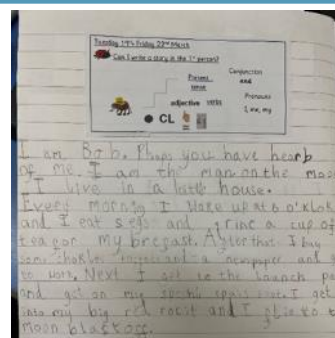 Tuesday 19th - Friday 22nd March
Can I write a story in the 1st person?
Present tense
Conjunction and
adjective verbs
Pronouns I, me, my
CL
I am Bob. Phaps you have hearb
of me. I am the man on the moo
I live in a little house.
Every morning I wake up at 6 o'klok
and I eat segs and rinc a cup of
tea for my brecfast. After that I buy
some choklet and a newspaper and
to work. Next I get to the launch pa
and get on my spac I get
into my big red rocit and I to t
moon blastoff.